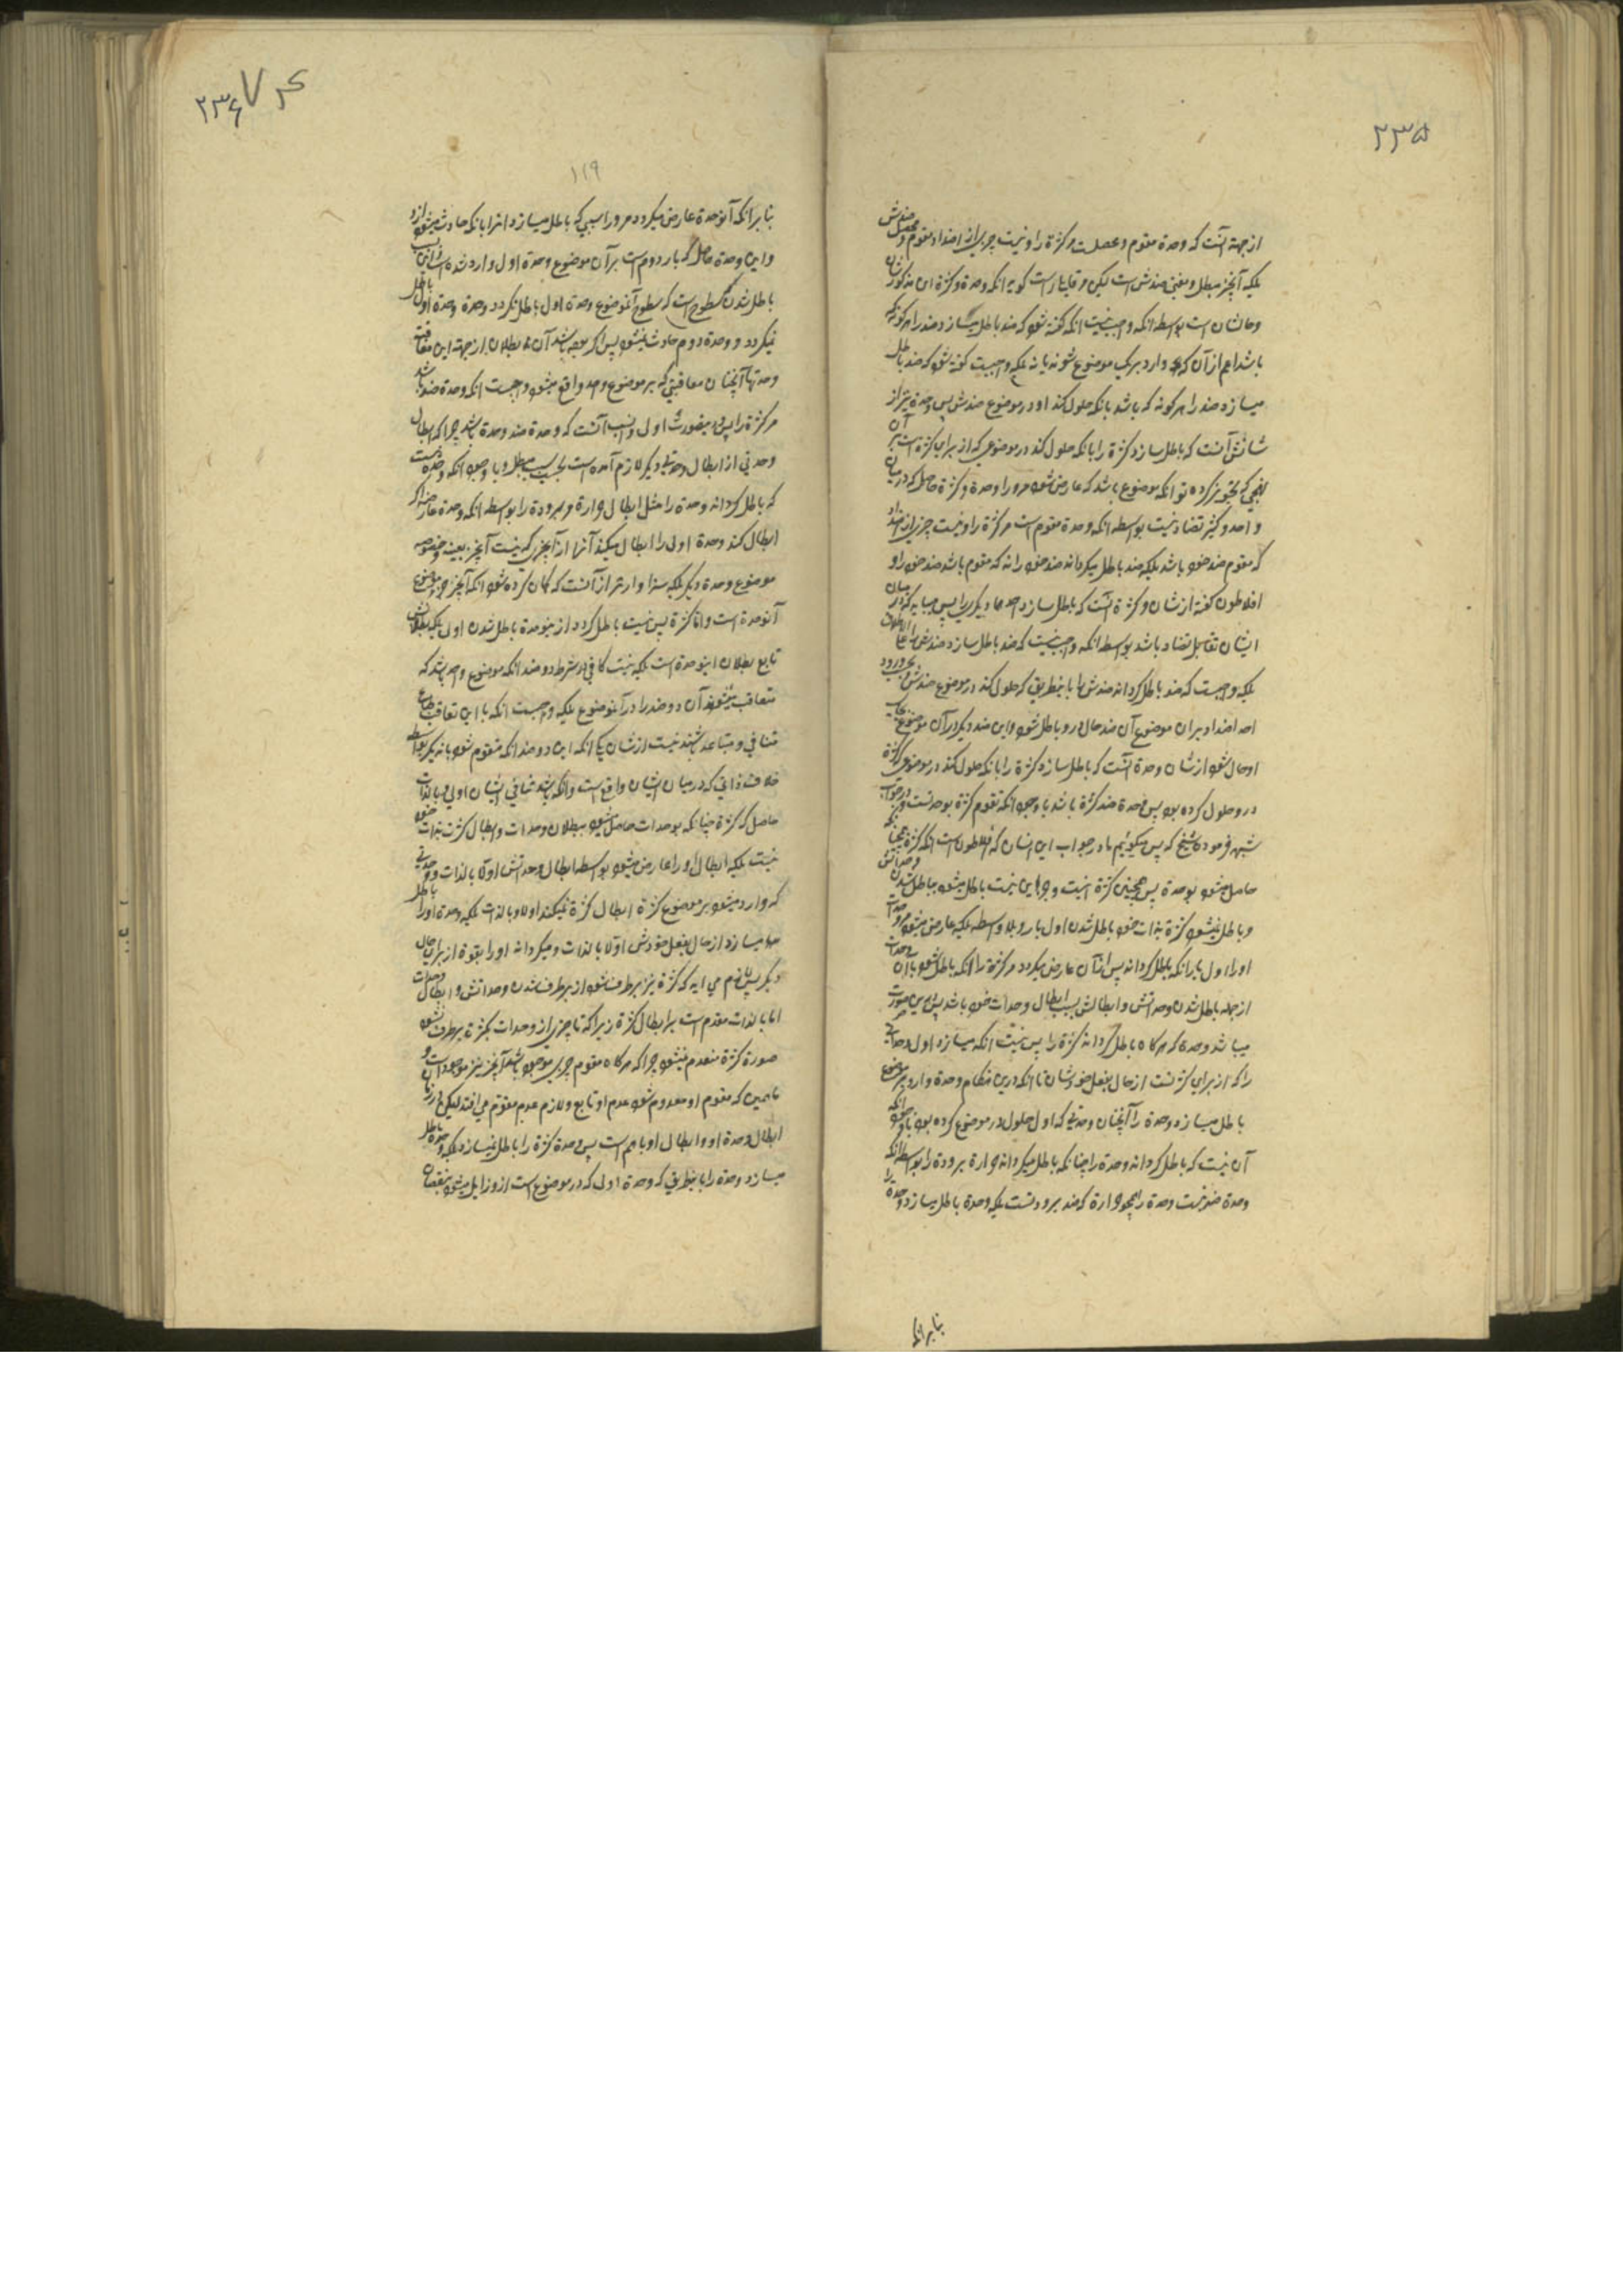 ۲۳۵
از جهة آنست که وحدة مقوم و محصلست مر کثرة را و نیست چیزی از اضداد مقوم و محصل ضدش
بلکه آنچیز مبطل و مفنی ضدش است لیکن مر قایلی راست که گوید آنکه وحدة و کثرة این مذکور شان
و حالشان است بواسطه آنکه واجب نیست آنکه گفته شود که ضد باطل میسازد ضد را هر گونه که
باشد اعم از آن که وارد بر یک موضوع شوند یا نه بلکه واجبست گفته شود که ضد باطل
میسازد ضد را هر گونه که باشد بانکه حلول کند او در موضوع ضدش پس وحدة نیز از
شانش آنست که باطل سازد کثرة را بانکه حلول کند در موضوعی که از برای کثرة است بر آن
نهجی که تجویز کرده تو آنکه موضوع باشد که عارض شود مر و را وحدة و کثرة حاصل که در میان
واحد و کثیر تضاد نیست بواسطه آنکه وحدة مقوم است مر کثرة را و نیست چیزی از اضداد
که مقوم ضد خود باشد بلکه ضد باطل میگرداند ضد خود را نه که مقوم باشد ضد خود را و
افلاطون گفته از شان و کثرة آنست که باطل سازد احدهما دیگر را پس میباید که در میان
ایشان تقابل تضاد باشد بواسطه آنکه واجب نیست که ضد باطل سازد ضدش را علی الاطلاق
بلکه واجبست که ضد باطل گرداند ضدش را باینطریق که حلول کند در موضوع ضدش
احد اضداد بران موضوع آن ضد حال در و باطل شود و این ضد دیگر در آن موضوع بجای
او حال شود از شان وحدة آنست که باطل سازد کثرة را بانکه حلول کند در موضوعی که کثرة
در و حلول کرده بود پس وحدة ضد کثرة باشد با وجود آنکه تقوم کثرة بوحدتست و در جواب این
شبهه فرموده شیخ که پس میگوئیم ما در جواب این انسان که افلاطون است آنکه کثرة همچنانکه
حاصل میشود بوحدة پس همچنین کثرة نیست و جز این نیست باطل میشود بباطل شدن وحداتش
و باطل نمیشود کثرة بذات خود باطل شدن اول بار و بلا واسطه بلکه عارض میشود مر وحدات
او را اول بار آنکه باطل گرداند پس از آن عارض میگردد مر کثرة را آنکه باطل شود با آن وحدات
از جمله باطل شدن وحداتش و ابطالش بسبب ابطال وحدات خود باشد پس درین صورت
میباشد وحدة که هر گاه باطل گرداند کثرة را پس نیست آنکه میسازد اول وحداتی
را که از برای کثرتست از حال بفعل خودشان تا آنکه درین هنگام وحدة وارد بر موضوع
باطل میسازد وحدة را آنچنان وحدتی که اول حلول در موضوع کرده بود با وجود آنکه
آن نیست که باطل گرداند وحدة را چنانکه باطل میگرداند حرارة برودة را بواسطه آنکه
وحدة ضد نیست وحدة را همچو حرارة که ضد برودتست بلکه وحدة باطل میسازد وحدة را
بنابرآنکه
۲۳۶
۱۱۹
بنابر آنکه آنوحدة عارض میگردد مر و را سببی که باطل میسازد انرا بانکه حادث میشود از و
و این وحدة حاصل که بار دوم است بر آن موضوع وحدة اول وارد شده است از این سبب
باطل شدن سطوح است که سطوح آنموضوع وحدة اول باطل نگردد وحدة وحدة اول باطل
نمیگردد و وحدة دوم حادث نمیشود پس اگر بوده باشد آن بطلان از جهة این معاقبة
وحدتها آنچنان معاقبتی که بر موضوع واحد واقع میشود واجبست آنکه وحدة ضد باشد
مر کثرة را پس درینصورت اولی و انسب آنست که وحدة ضد وحدة باشد چرا که ابطال
وحدتی از ابطال وحدتی دیگر لازم آمده است بحسب سبب مبطل و با وجود آنکه وحدة نیست
که باطل گرداند وحدة را مثل ابطال حرارة مر برودة را بواسطه آنکه وحدة طاریه هر گاه
ابطال کند وحدة اولی را ابطال میکند آنرا از آنچیزی که نیست آنچیز بعینه و خصوصه
موضوع وحدة دیگر بلکه سزاوارتر از آنست که گمان کرده شود آنکه آنچیز جزء موضوع
آنوحدة است و اما کثرة پس نیست باطل گردد از ینوحدة باطل شدن اول بلکه بطلانش
تابع بطلان اینوحدة است بلکه نیست کافی در شرط دو ضد آنکه موضوع واحد باشد که
متعاقب میشوند آن دو ضد را در آنموضوع بلکه واجبست آنکه با این تعاقب طباع
متنافی و متباعد باشند نیست از شان یکی آنکه این دو ضد آنکه متقوم شود باندیگر بواسطه
خلاف ذاتی که در میان ایشان واقع است و آنکه باشد تنافی ایشان اولی و بالذات
حاصل که کثرة چنانکه بوحدات حاصل میشود ببطلان وحدات و ابطال کثرت بذات خود
نیست بلکه ابطال او را عارض میشود بواسطه ابطال وحداتش اولا بالذات و وحدتی
که وارد میشود بر موضوع کثرة ابطال کثرة نمیکند اولا و بالذات بلکه وحدة او را باطل
میسازد از حال بفعل خودش اولا بالذات و میگرداند او را بقوة از برای حال
دیگر پس لازم می آید که کثرة نیز برطرف شود از برطرف شدن وحداتش و ابطال وحدات
اما بالذات مقدم است بر ابطال کثرة زیرا که تا چیزی از وحدات بکثرة برطرف نشود
صورة کثرة منعدم نمیشود چرا که هر گاه مقوم چیزی موجود باشد آنچیز نیز موجود است و
همین که مقوم او معدوم شود عدم او تابع و لازم عدم مقوم می افتد لیکن در زمان
ابطال وحدة او و ابطال او با هم است پس وحدة کثرة را باطل نمیسازد بلکه وحدة باطل
میسازد وحدة را باینطریق که وحدة اولی که در موضوع است از و زایل میشود بنقصان